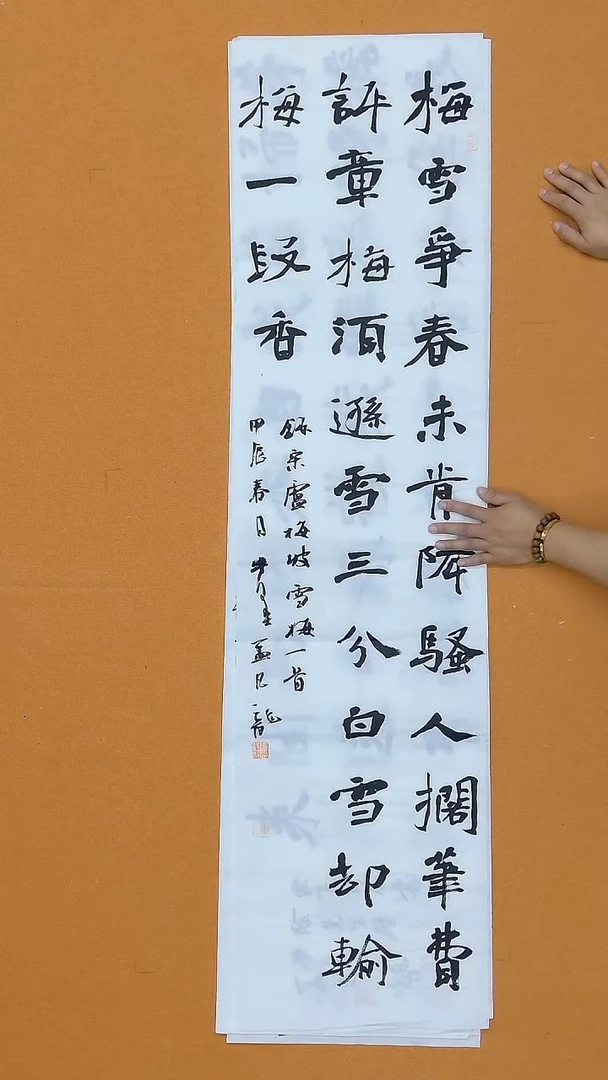 梅雪爭春未肯降騷人擱筆費
評章梅湏遜雪三分白雪却輸
梅一段香
錄宋盧梅坡雪梅一首
甲辰春月孟凡龍